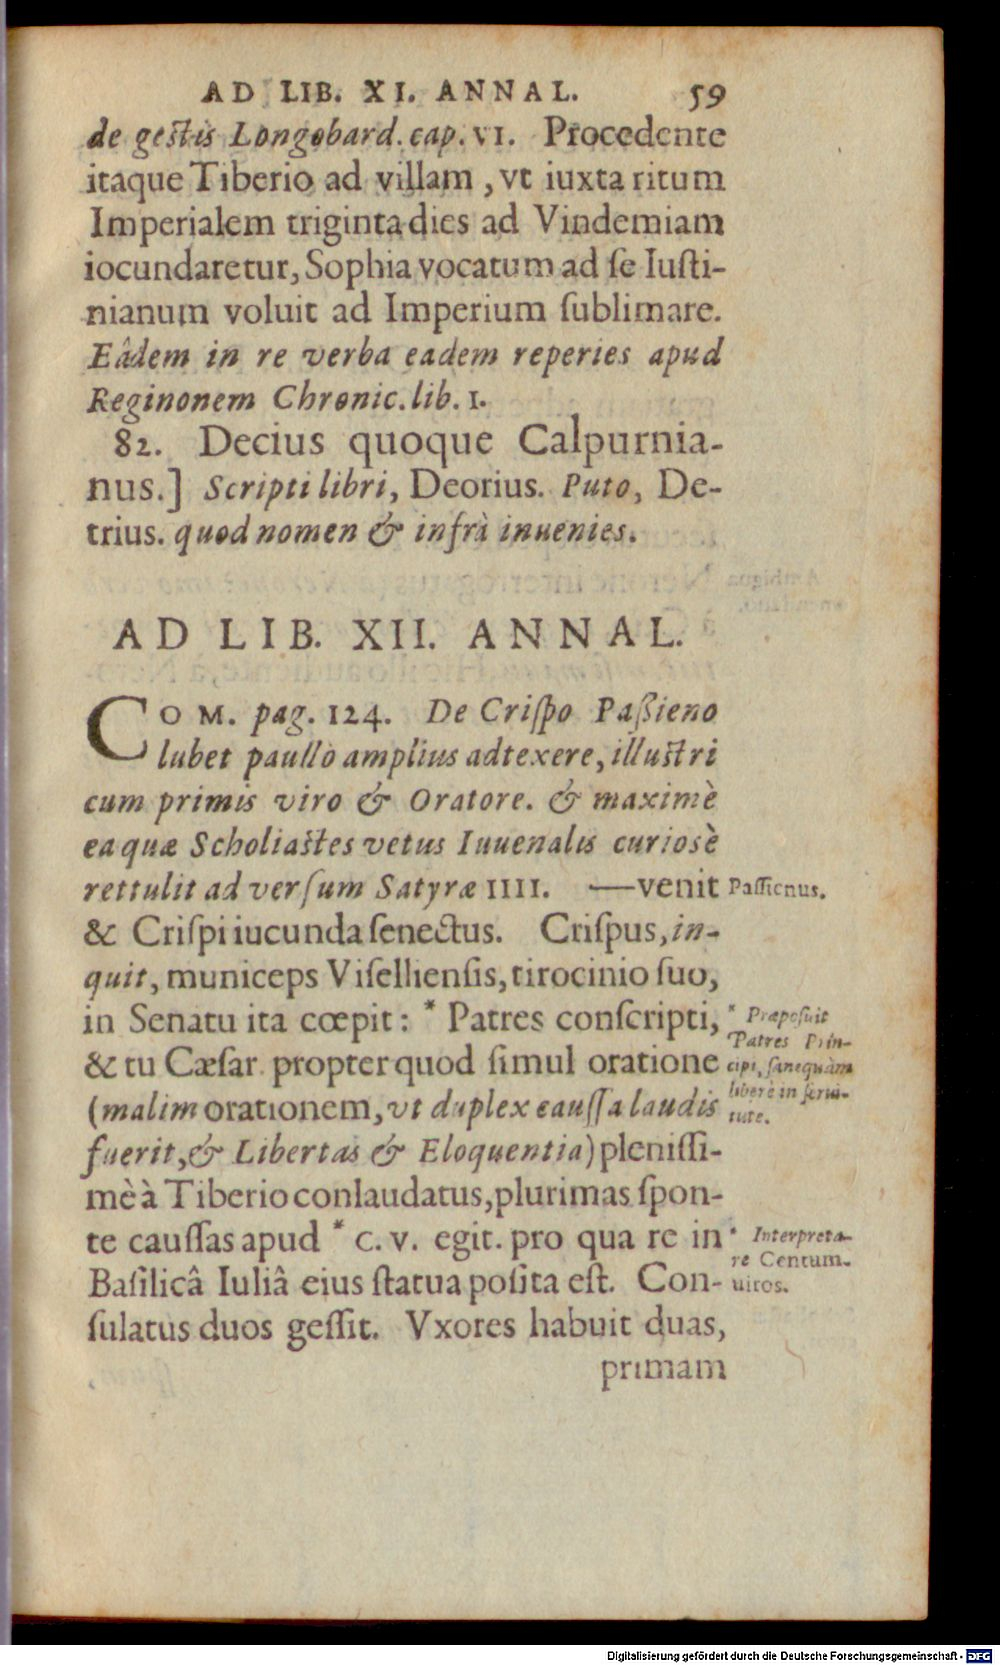 AD LIB. XI. ANNAL. 59
de gestis Longobard. cap. VI. Procedente
itaque Tiberio ad villam, vt iuxta ritum
Imperialem triginta dies ad Vindemiam
iocundaretur, Sophia vocatum ad se Iusti-
nianum voluit ad Imperium sublimare.
Eâdem in re verba eadem reperies apud
Reginonem Chronic. lib. I.
82. Decius quoque Calpurnia-
nus.] Scripti libri, Deorius. Puto, De-
trius. quod nomen & infrà inuenies.
AD LIB. XII. ANNAL.
COM. pag. 124. De Crispo Paßieno
lubet paullò amplius adtexere, illustri
cum primis viro & Oratore. & maximè
ea quæ Scholiastes vetus Iuuenalis curiosè
rettulit ad versum Satyræ IIII. —venit
Passienus.
& Crispi iucunda senectus. Crispus, in-
quit, municeps Viselliensis, tirocinio suo,
in Senatu ita cœpit: * Patres conscripti,
& tu Cæsar. propter quod simul oratione
(malim orationem, vt duplex caussa laudis
fuerit, & Libertas & Eloquentia) plenissi-
mè à Tiberio conlaudatus, plurimas spon-
te caussas apud * C. V. egit. pro qua re in
Basilicâ Iuliâ eius statua posita est. Con-
sulatus duos gessit. Vxores habuit duas,
primam
* Præposuit
Patres Prin-
cipi, sanequàm
liberè in serui-
tute.
* Interpreta-
re Centum-
uiros.
Digitalisierung gefördert durch die Deutsche Forschungsgemeinschaft - DFG